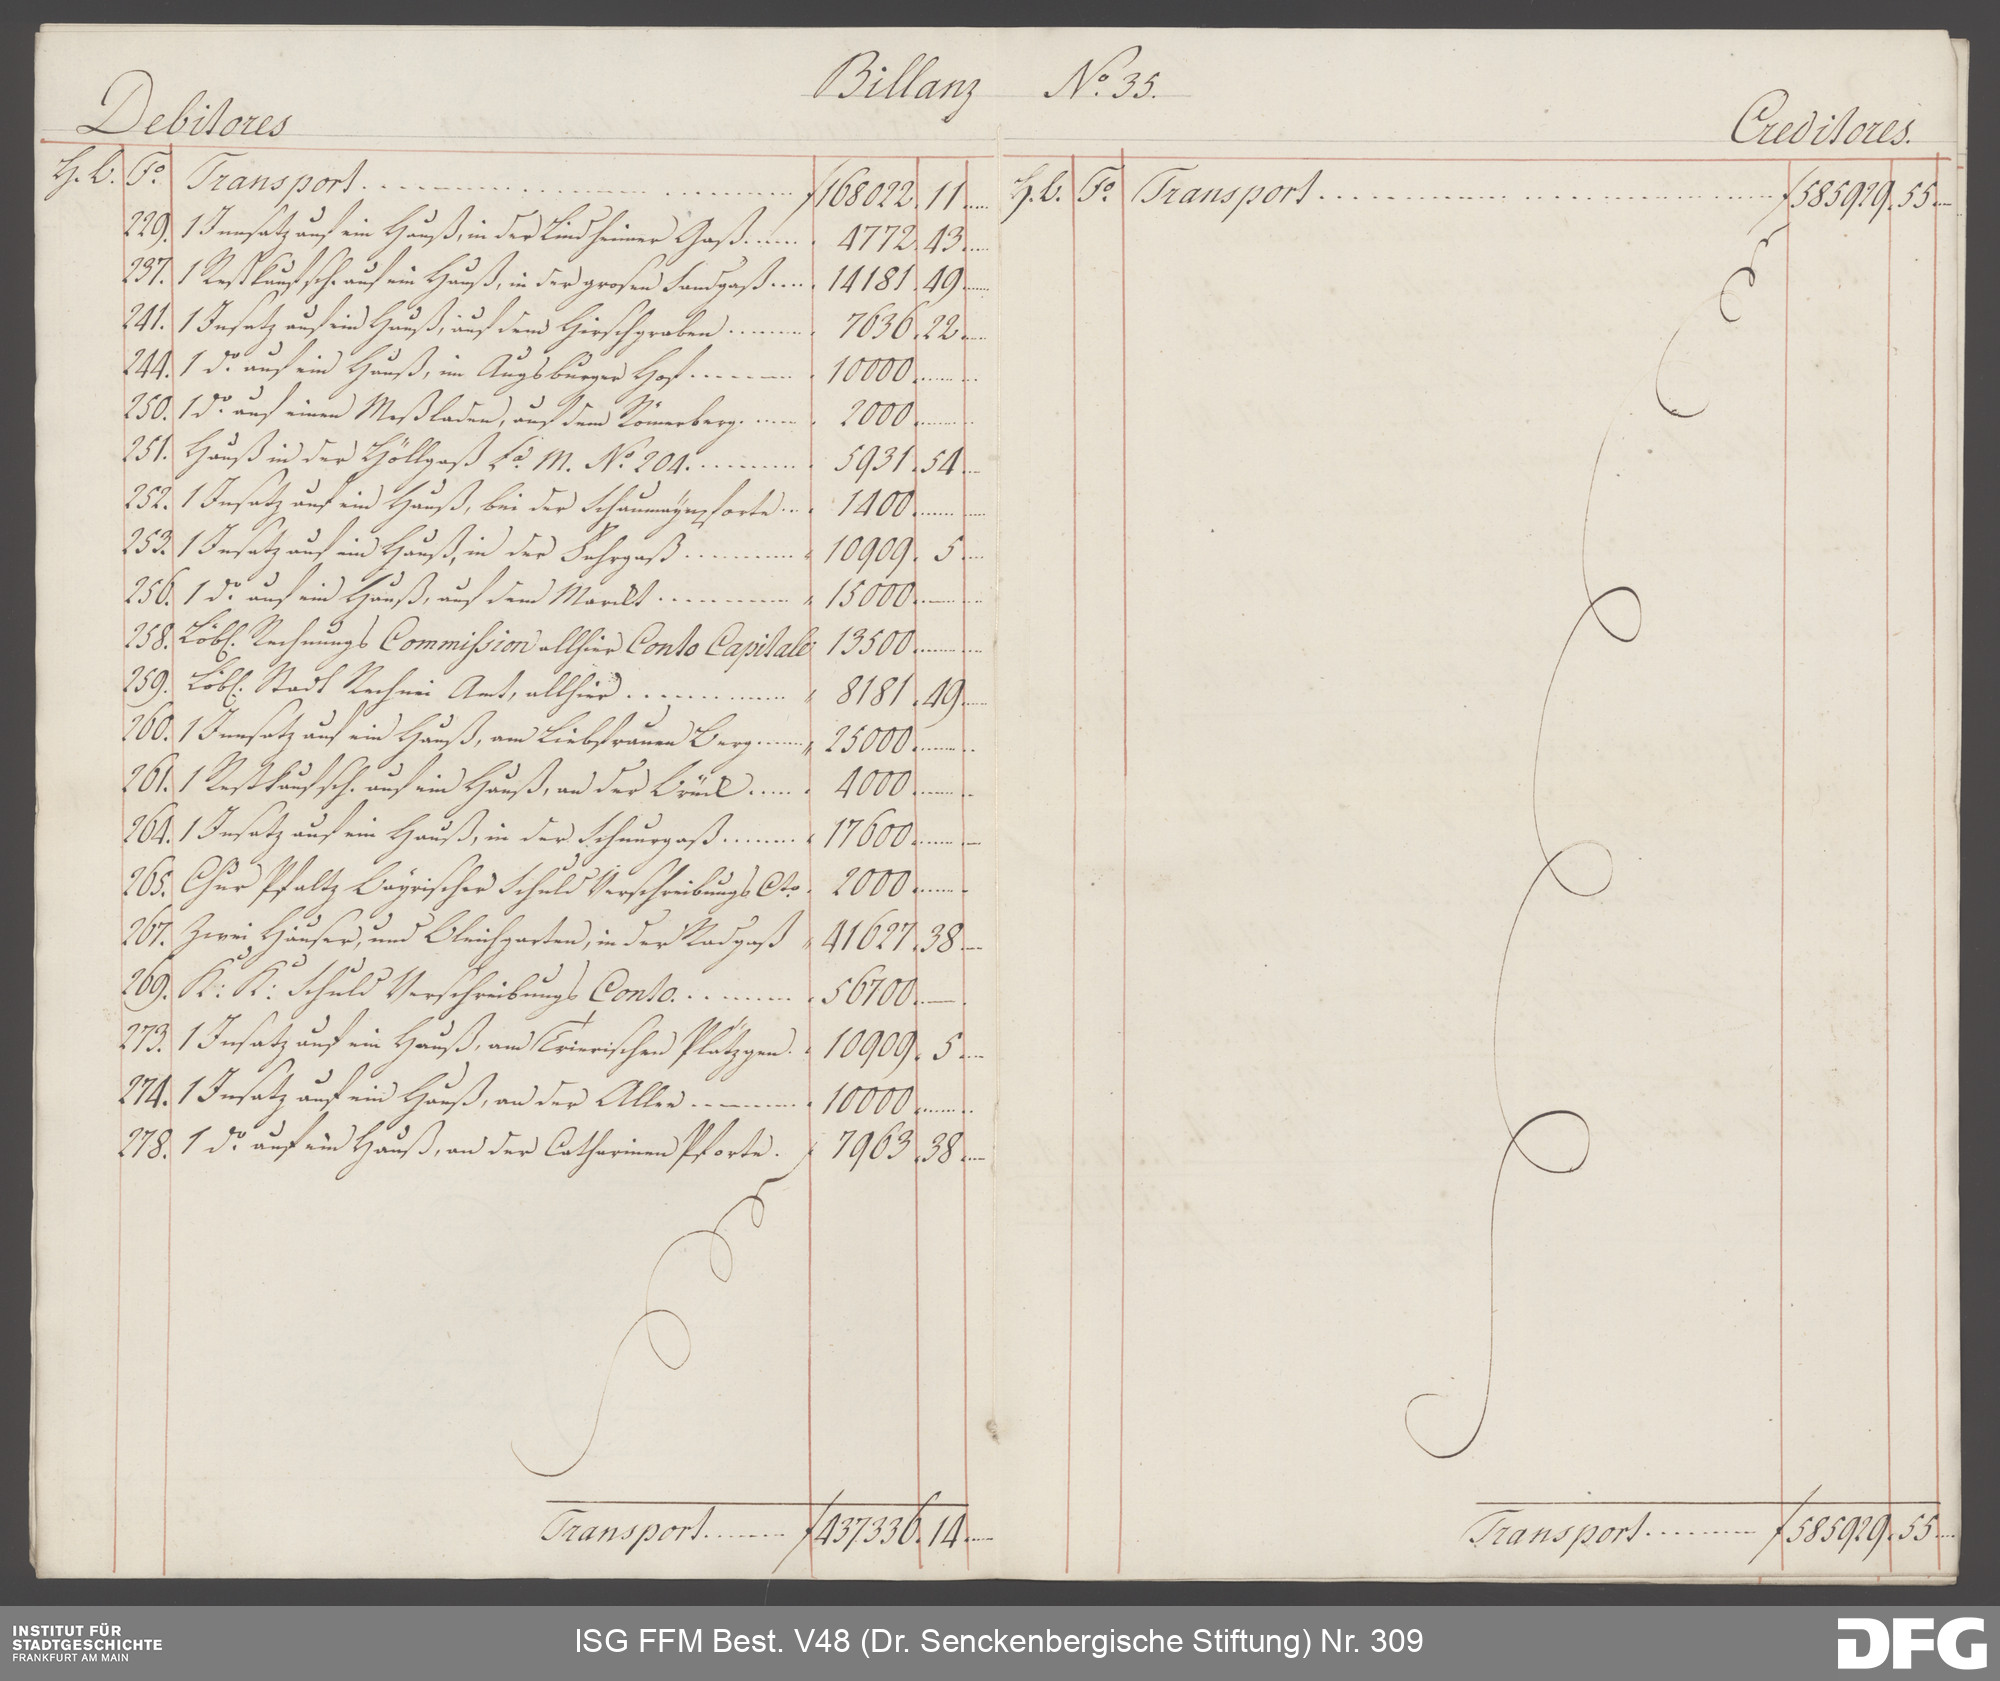 Billanz No. 35.
Debitores
Creditores.
H.b. Fo. Transport . . . . f 168022. 11. —
229. 1 Innsatz auf ein Hauß, in der Lindheimer Gaß . . . . 4772. 43. —
237. 1 Restkaufsch. auf ein Hauß, in der grosen Sandgaß . . . . 14181. 49. —
241. 1 Insatz auf ein Hauß, auf dem Hirschgraben . . . . 7636. 22. —
244. 1 do. auf ein Hauß, im Augsburger Hof . . . . 10000. —
250. 1 do. auf einen Meßladen, auf dem Römerberg. . . . . 2000. —
251. Hauß in der Höllgaß La. M. No. 204. . . . . 5931. 54. —
252. 1 Insatz auf ein Hauß, bei der Schaumaynpforte . . . . 1400. —
253. 1 Insatz auf ein Hauß, in der Fahrgaß . . . . 10909. 5. —
256. 1 do. auf ein Hauß, auf dem Marckt . . . . 15000. —
258. Löbl. Rechnungs Commission allhier Conto Capitale 13500. —
259. Löbl. Stadt Rechnei Amt, allhier . . . . 8181. 49. —
260. 1 Innsatz auf ein Hauß, am Liebfrauen Berg . . . . 25000. —
261. 1 Restkaufsch. auf ein Hauß, an der Brück . . . . 4000. —
264. 1 Insatz auf ein Hauß, in der Schnurgaß . . . . 17600. —
265. Chur Pfaltz Bayrischer Schuld Verschreibungs Cto. 2000. —
267. Zwei Häuser, und Bleichgarten, in der Radgaß 41627. 38. —
269. K: K: Schuld Verschreibungs Conto. . . . . 56700. —
273. 1 Insatz auf ein Hauß, am Trierischen Plätzgen. 10909. 5. —
274. 1 Insatz auf ein Hauß, an der Allee . . . . 10000. —
278. 1 do. auf ein Hauß, an der Catharinen Pforte. 7963. 38. —
Transport . . . . f 437336. 14. —
H.b. Fo. Transport . . . . f 585929. 55. —
Transport . . . . f 585929. 55. —
INSTITUT FÜR
STADTGESCHICHTE
FRANKFURT AM MAIN
ISG FFM Best. V48 (Dr. Senckenbergische Stiftung) Nr. 309
DFG